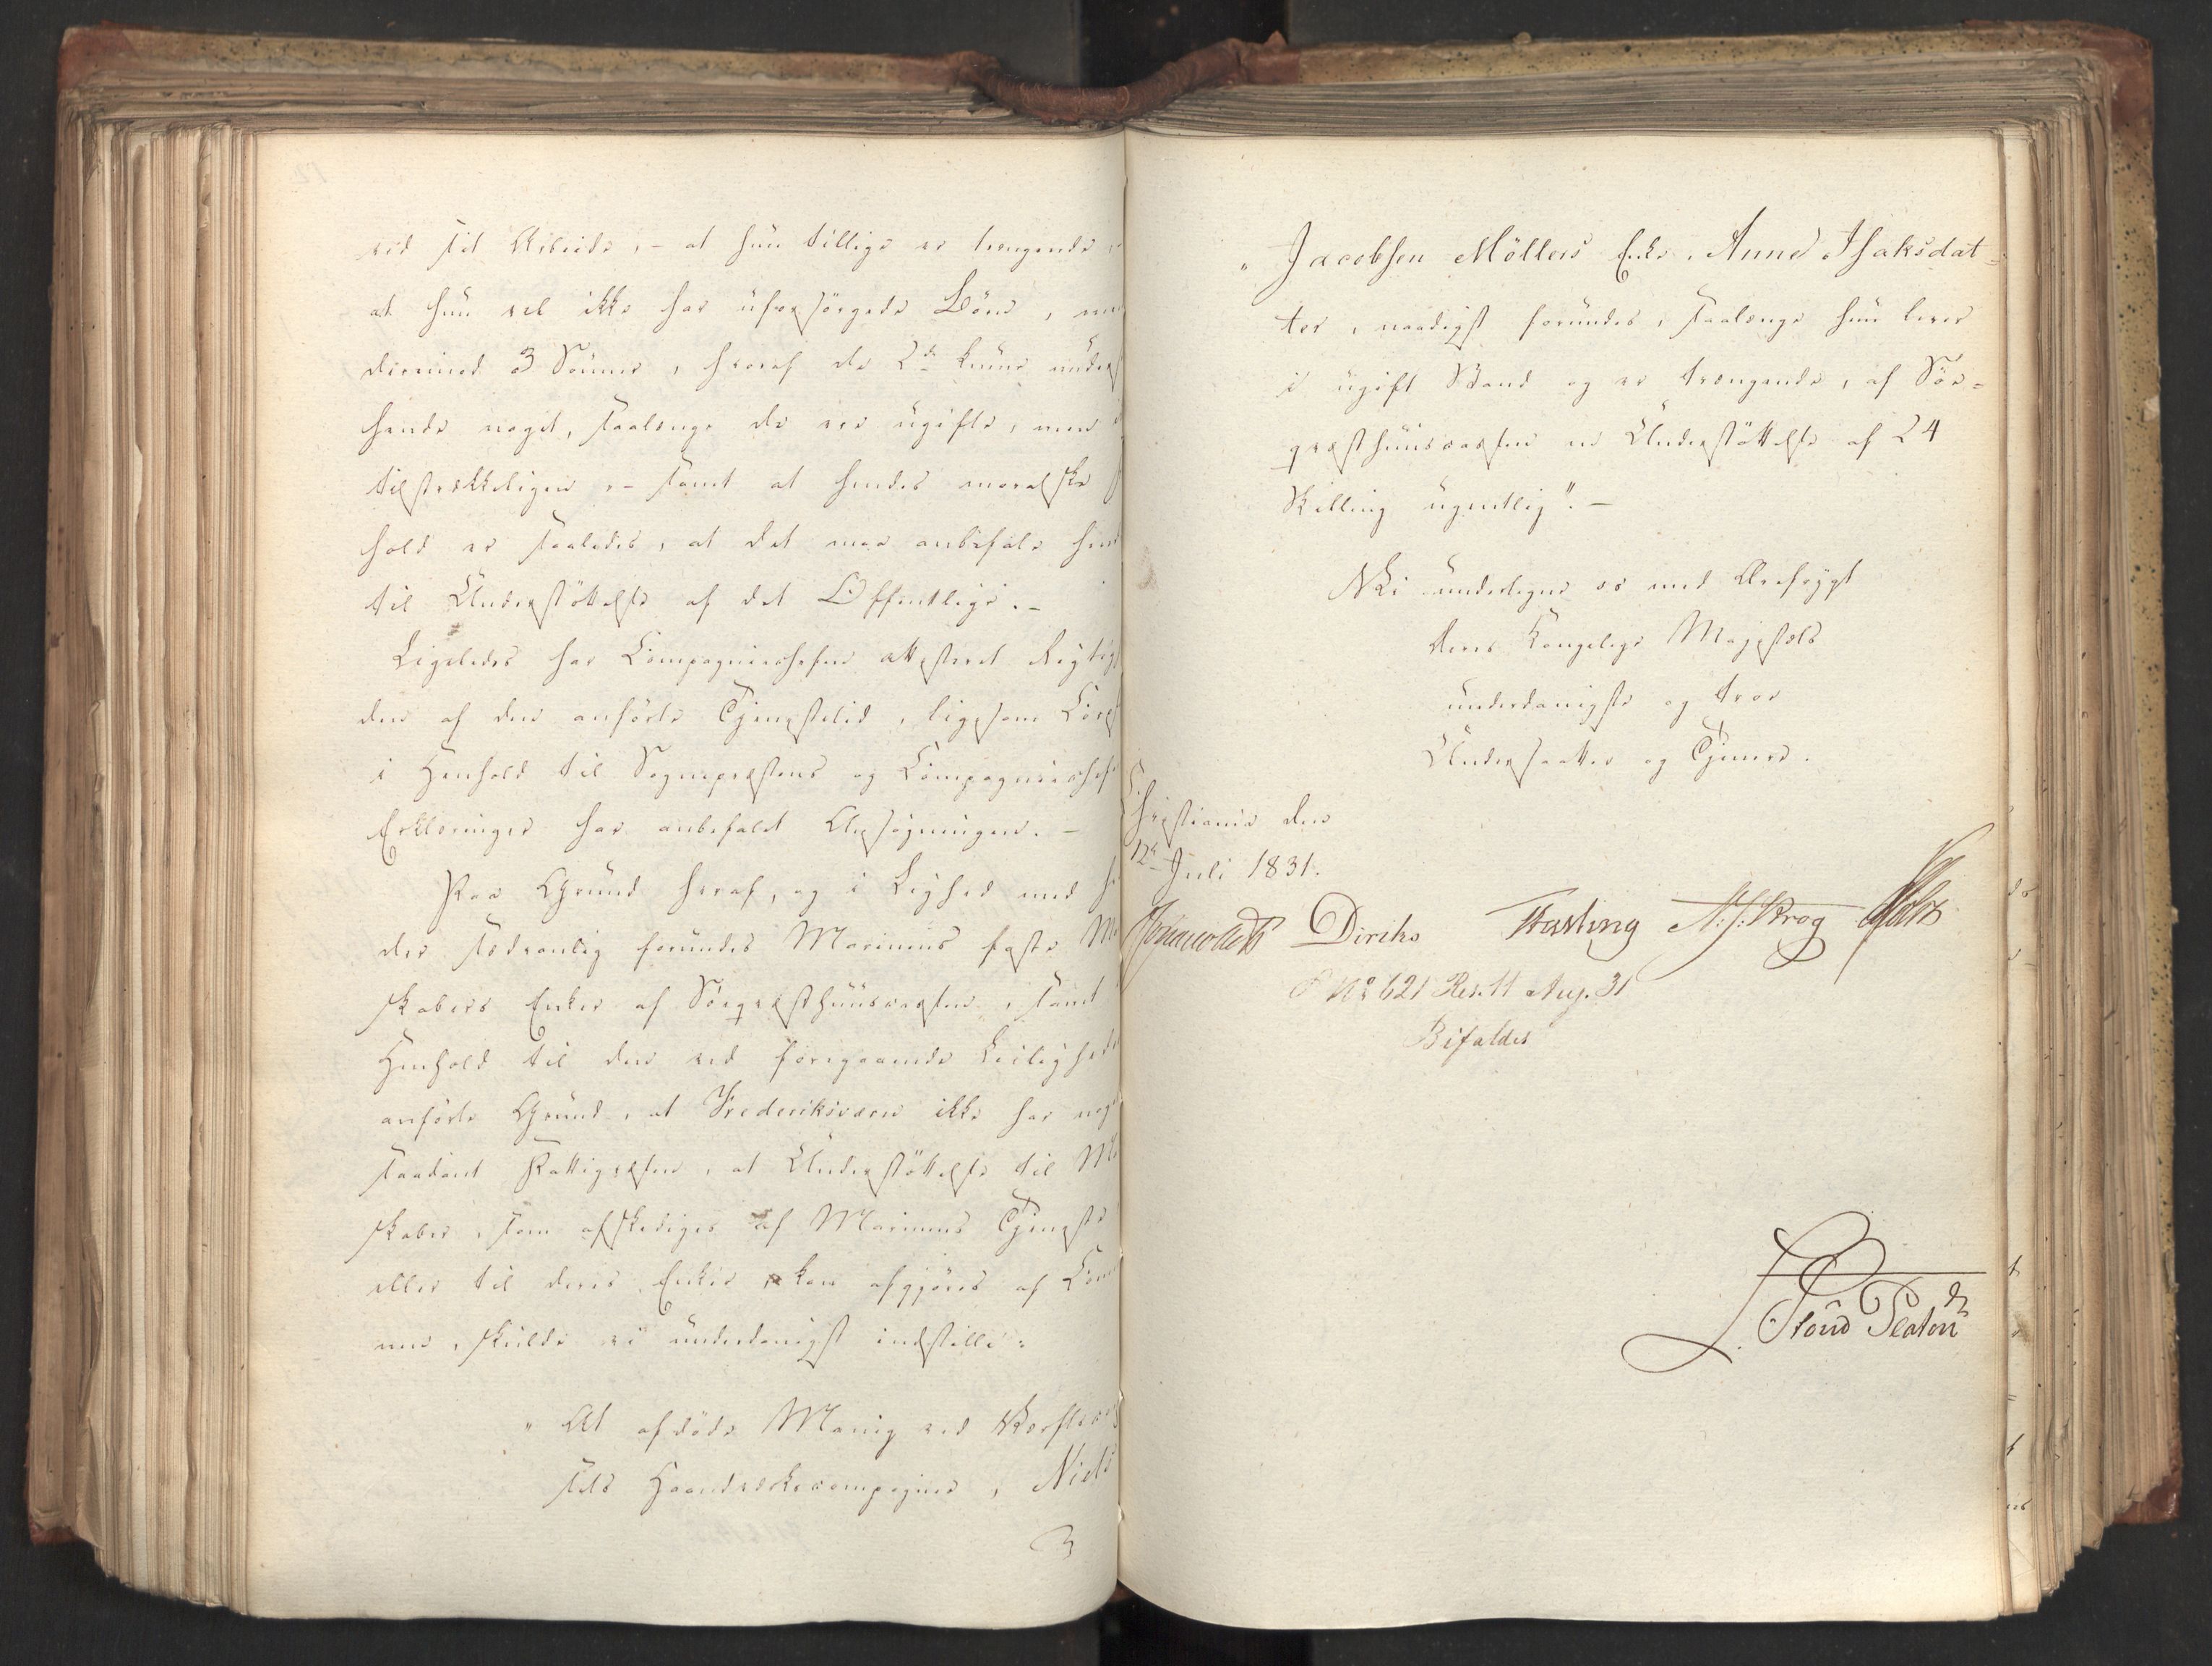 ved sit Arbeide, – at hun tillige er trængende,
at hun vel ikke har uforsörgede Börn,
derimod 3 Sönner, hvoraf de 2de kunne under
hende noget, saalænge de ere ugifte, men
tilstrækkeligen, – samt at hendes moralske
hold er saaledes, at det maa anbefale hende
til Understöttelse af det Offentlige. –
Ligeledes har Compagniechefen attesteret Rigtig
den af den anförte Tjenestetid, ligesom Corps
i Henhold til Sognepræstens og Compagniechef
Erklæringer har anbefalet Ansögningen. –
Paa Grund heraf, og i Lighed med
der sædvanlig forundes Marinens faste M
skabers Enker af Söeqvæsthuuscassen, samt
Henhold til den ved foregaaende Leilighed
anförte Grund, at Frederiksværn ikke har noget
saadant Fattigvæsen, at Understöttelse til Ma
skaber, som afskediges af Marinens Tjeneste
eller til deres Enker, kan afgjöres af Com
nen, skulde vi underdanigst indstille:
" At afdöde Menig ved Værftets
Haandværkscompagnie, Niels
" Jacobsen Möllers Enke, Anne Isaksdat=
ter, naadigst forundes, saalænge hun lever
i ugift Stand og er trængende, af Söe=
qvæsthuuscassen en Understöttelse af 24
Skilling ugentlig". –
Vi undertegne os med Ærefrygt
Deres Kongelige Majestæts
underdanigste og troe
Undersaatter og Tjenere.
Christiania den
12te Juli 1831.
Diriks Fasting N. J. Krog
No 621 Res. 11 Aug. 31
Bifaldes